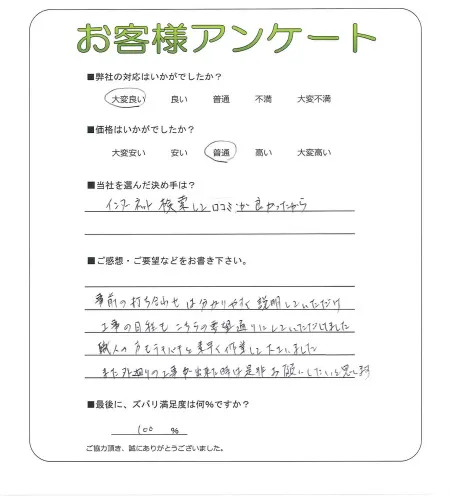 お客様アンケート
■弊社の対応はいかがでしたか？
大変良い 良い 普通 不満 大変不満
■価格はいかがでしたか？
大変安い 安い 普通 高い 大変高い
■当社を選んだ決め手は？
インターネット検索して口コミが良かったから
■ご感想・ご要望などをお書き下さい。
事前の打ち合わせは分かりやすく説明していただけ
工事の日程もこちらの要望通りにしていただけました
職人の方もテキパキと素早く作業して下さいました
また外廻りの工事が出来た時は是非お願いしたいと思います
■最後に、ズバリ満足度は何％ですか？
100 %
ご協力頂き、誠にありがとうございました。